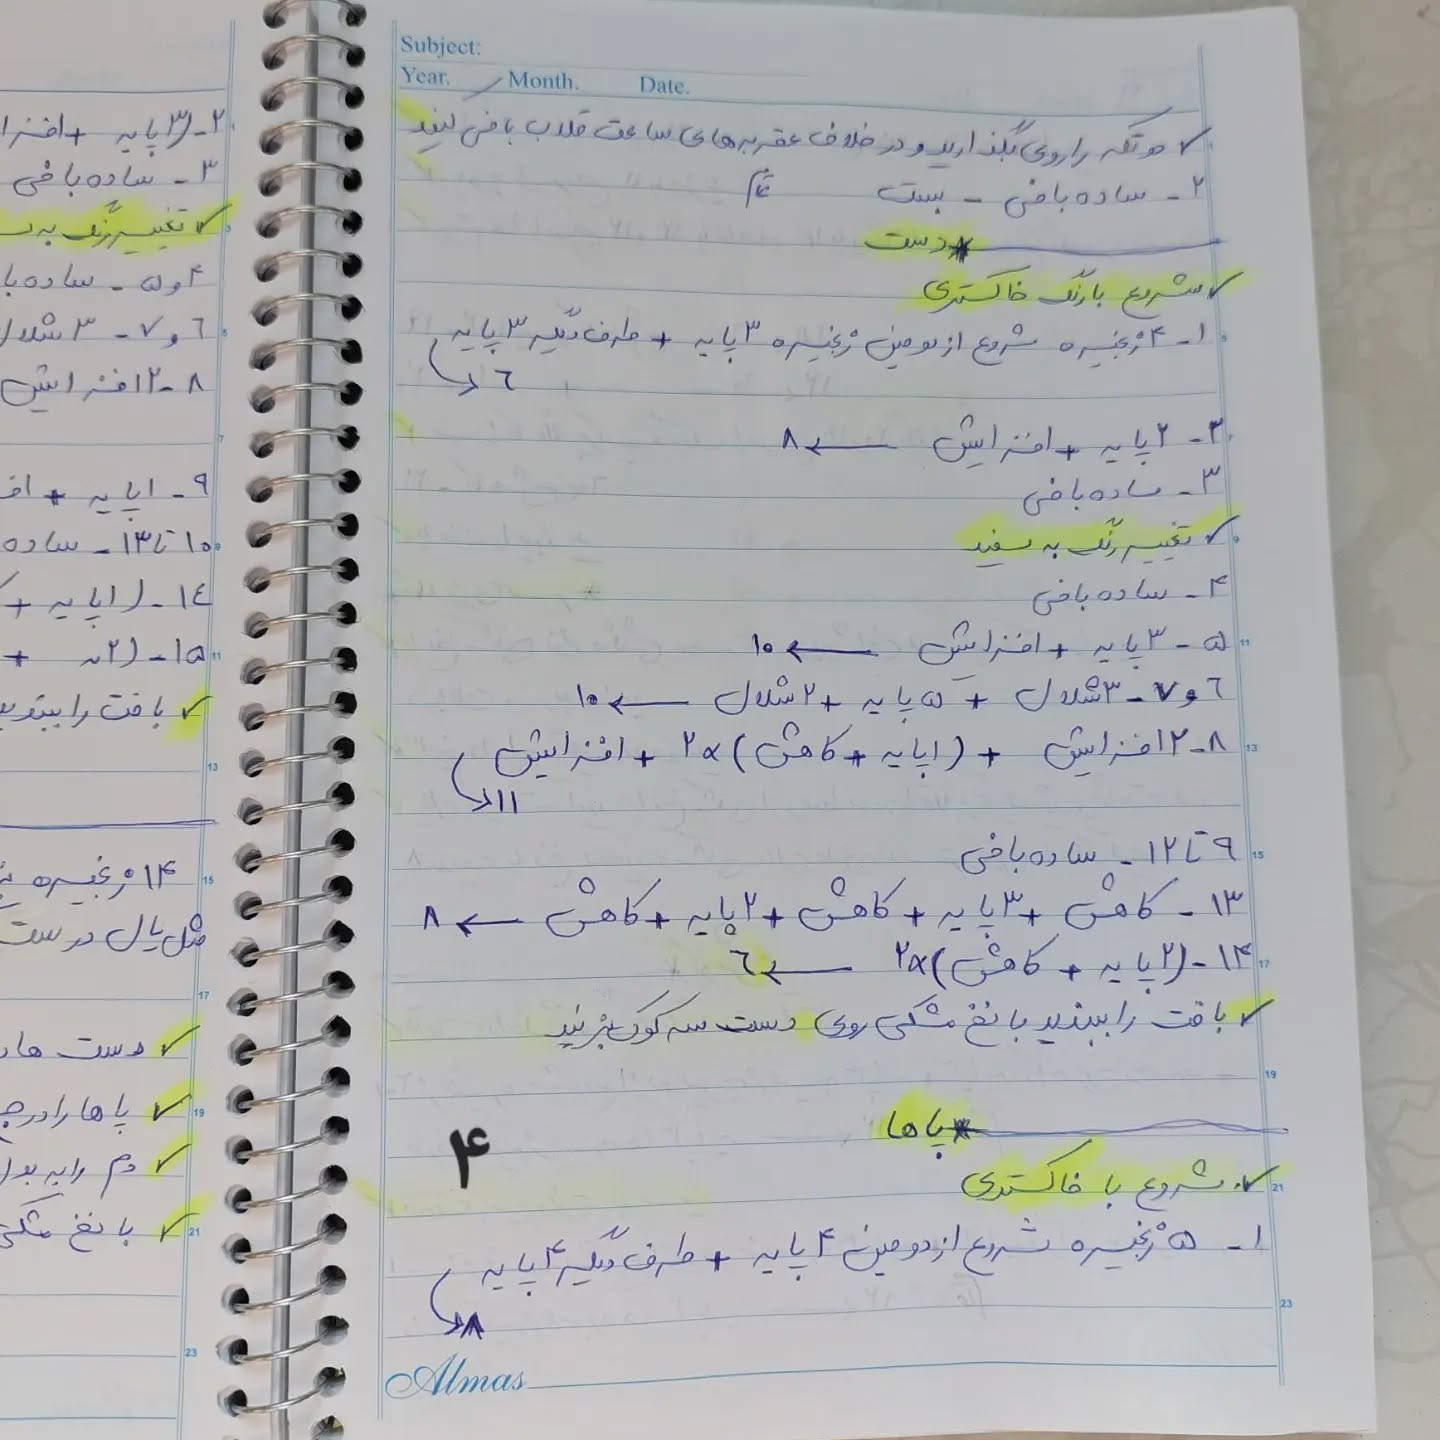 Subject:
Year. Month. Date.
✓ دو تکه را روی بگذارید و در خلاف عقربه های ساعت قلاب بافی کنید
۲- ساده بافی - بست
*دست
✓ شروع با رنگ خاکستری
۱- ۴ زنجیره شروع از دومین زنجیره ۳ پایه + طرف دیگر ۳ پایه
→ ٦
۲- ۲ پایه + افزایش ← ۸
۳- ساده بافی
✓ تغییر رنگ به سفید
۴- ساده بافی
۵- ۳ پایه + افزایش ← ۱۰
٦ و ۷- ۳ شلال + ۵ پایه + ۲ شلال ← ۱۰
۸- ۲ افزایش + (۱ پایه + کاهش)×۲ + افزایش
→ ۱۱
۹ تا ۱۲- ساده بافی
۱۳- کاهش + ۳ پایه + کاهش + ۲ پایه + کاهش ← ۸
۱۴- (۲ پایه + کاهش)×۲ ← ٦
✓ بافت را ببندید با نخ مشکی روی دست سه کوک بزنید
*پاها
۴
✓ شروع با خاکستری
۱- ۵ زنجیره شروع از دومین ۴ پایه + طرف دیگر ۴ پایه
→ ۸
Almas
۲- (۳ پایه + افزا
۳- ساده بافی
✓ تغییر رنگ به س
۴ و ۵- ساده با
٦ و ۷- ۳ شلال
۸- ۲ افزایش
۹- ۱ پایه + اف
۱۰ تا ۱۳- ساده
۱٤- (۱ پایه + ک
۱۵- (۲ +
✓ بافت را ببندید
۱۴ زنجیره
مثل یال درست
✓ دست ها
✓ پا ها را در
✓ دم را به
✓ با نخ مشکی